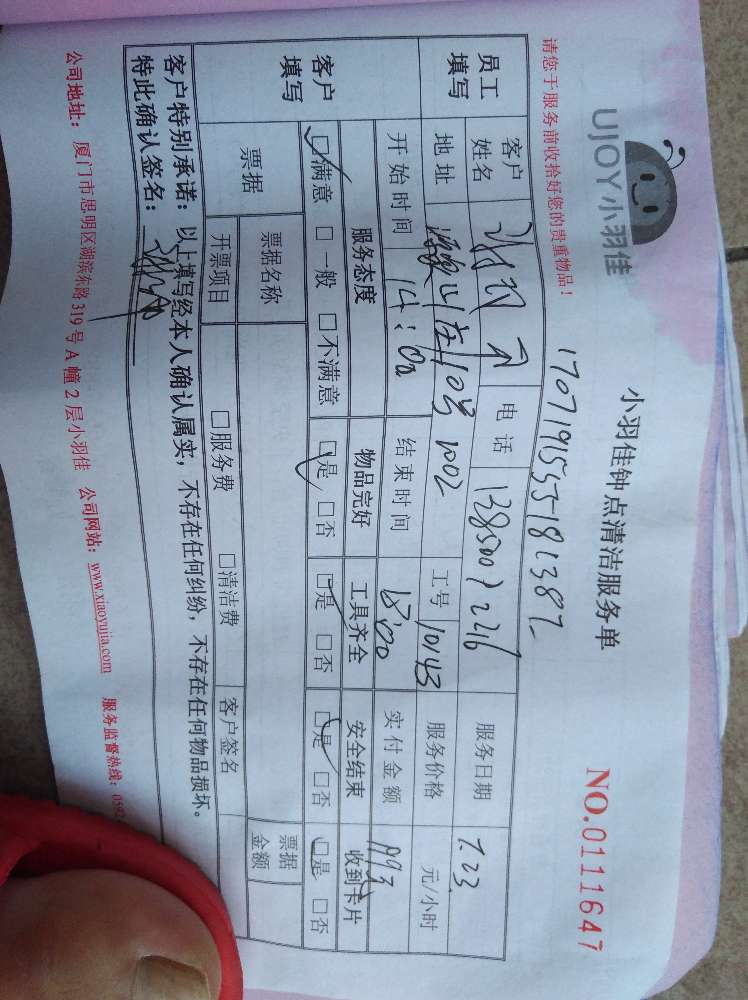 UJOY小羽佳
小羽佳钟点清洁服务单
NO.0111647
请您于服务前收拾好您的贵重物品！
员工填写
客户姓名 电话 服务日期 7.23
地址 10号 1002 工号 10143 服务价格 元/小时
开始时间 14:00 结束时间 18:00 实付金额
客户填写
服务态度 物品完好 工具齐全 安全结束 收到卡片
□满意 □一般 □不满意 □是 □否 □是 □否 □是 □否 □是 □否
票据 票据名称 票据金额
开票项目 □服务费 □清洁费 客户签名
客户特别承诺：以上填写经本人确认属实，不存在任何纠纷，不存在任何物品损坏。
特此确认签名：
公司地址：厦门市思明区湖滨东路319号A幢2层小羽佳 公司网站：www.xiaoyujia.com 服务监督热线：0592